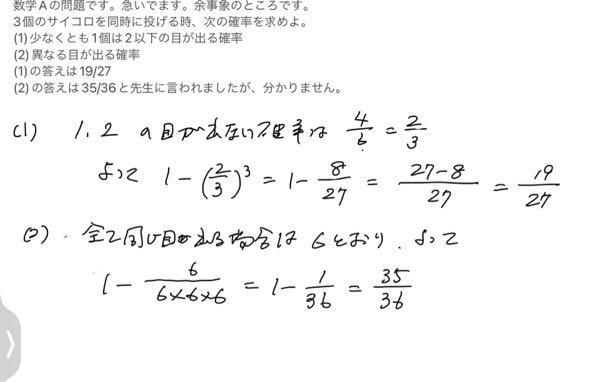 数学Aの問題です。急いでます。余事象のところです。
3個のサイコロを同時に投げる時、次の確率を求めよ。
(1)少なくとも1個は2以下の目が出る確率
(2)異なる目が出る確率
(1)の答えは19/27
(2)の答えは35/36と先生に言われましたが、分かりません。
(1) 1, 2 の目が出ない確率は 4/6 = 2/3
よって 1 - (2/3)^3 = 1 - 8/27 = 27-8/27 = 19/27
(2). 全て同じ目が出る場合は 6とおり. よって
1 - 6/6×6×6 = 1 - 1/36 = 35/36